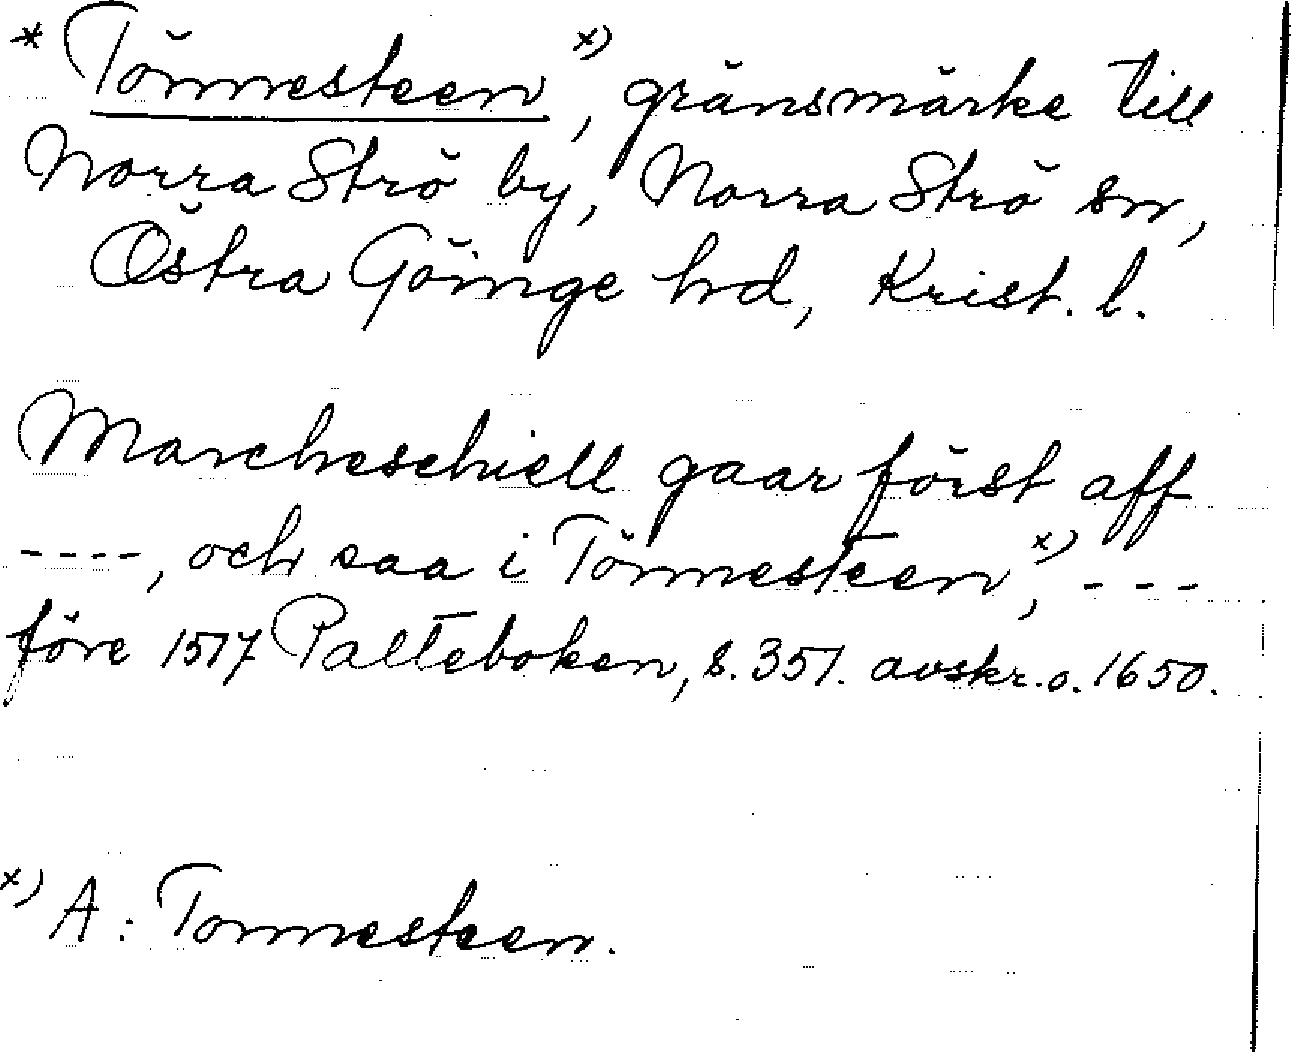 * Tönnesteen x), gränsmärke till
Norra Strö by, Norra Strö sn,
Östra Göinge hd, Krist. l.
Marcheschiell gaar först aff
----, och saa i Tönnesteen x), ---
före 1517 Palteboken, s. 351. avskr. o. 1650.
x) A: Tonnesteen.